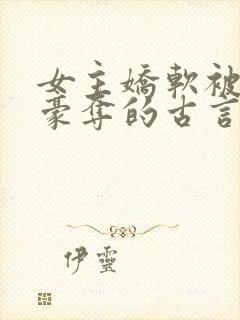 女主嬌軟被
豪奪的古言
伊靈